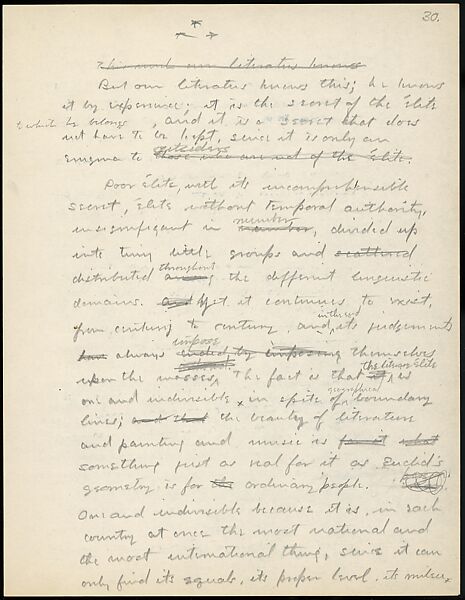 30.
* * *
This much our literatus knows
But our literatus knows this; he knows
it by experience; it is the secret of the élite
to which he belongs , and it is a secret that does
not have to be kept, since it is only an
outsiders
enigma to those who are not of the élite.
Poor élite, with its incomprehensible
secret, élite without temporal authority,
number
insignificant in number, divided up
into tiny little groups and scattered
throughout
distributed among the different linguistic
domains. And yet it continues to exist,
in the end
from century to century, and, its judgements
impose
have always ended by imposing themselves
the literary élite
upon the masses. The fact is that it is
geographical
one and indivisible, in spite of boundary
lines; and that the beauty of literature
and painting and music is for it what
something just as real for it as Euclid's
geometry is for the ordinary people.
One and indivisible because it is, in each
country at once the most national and
the most international thing, since it can
only find its equals, its proper level, its milieu,